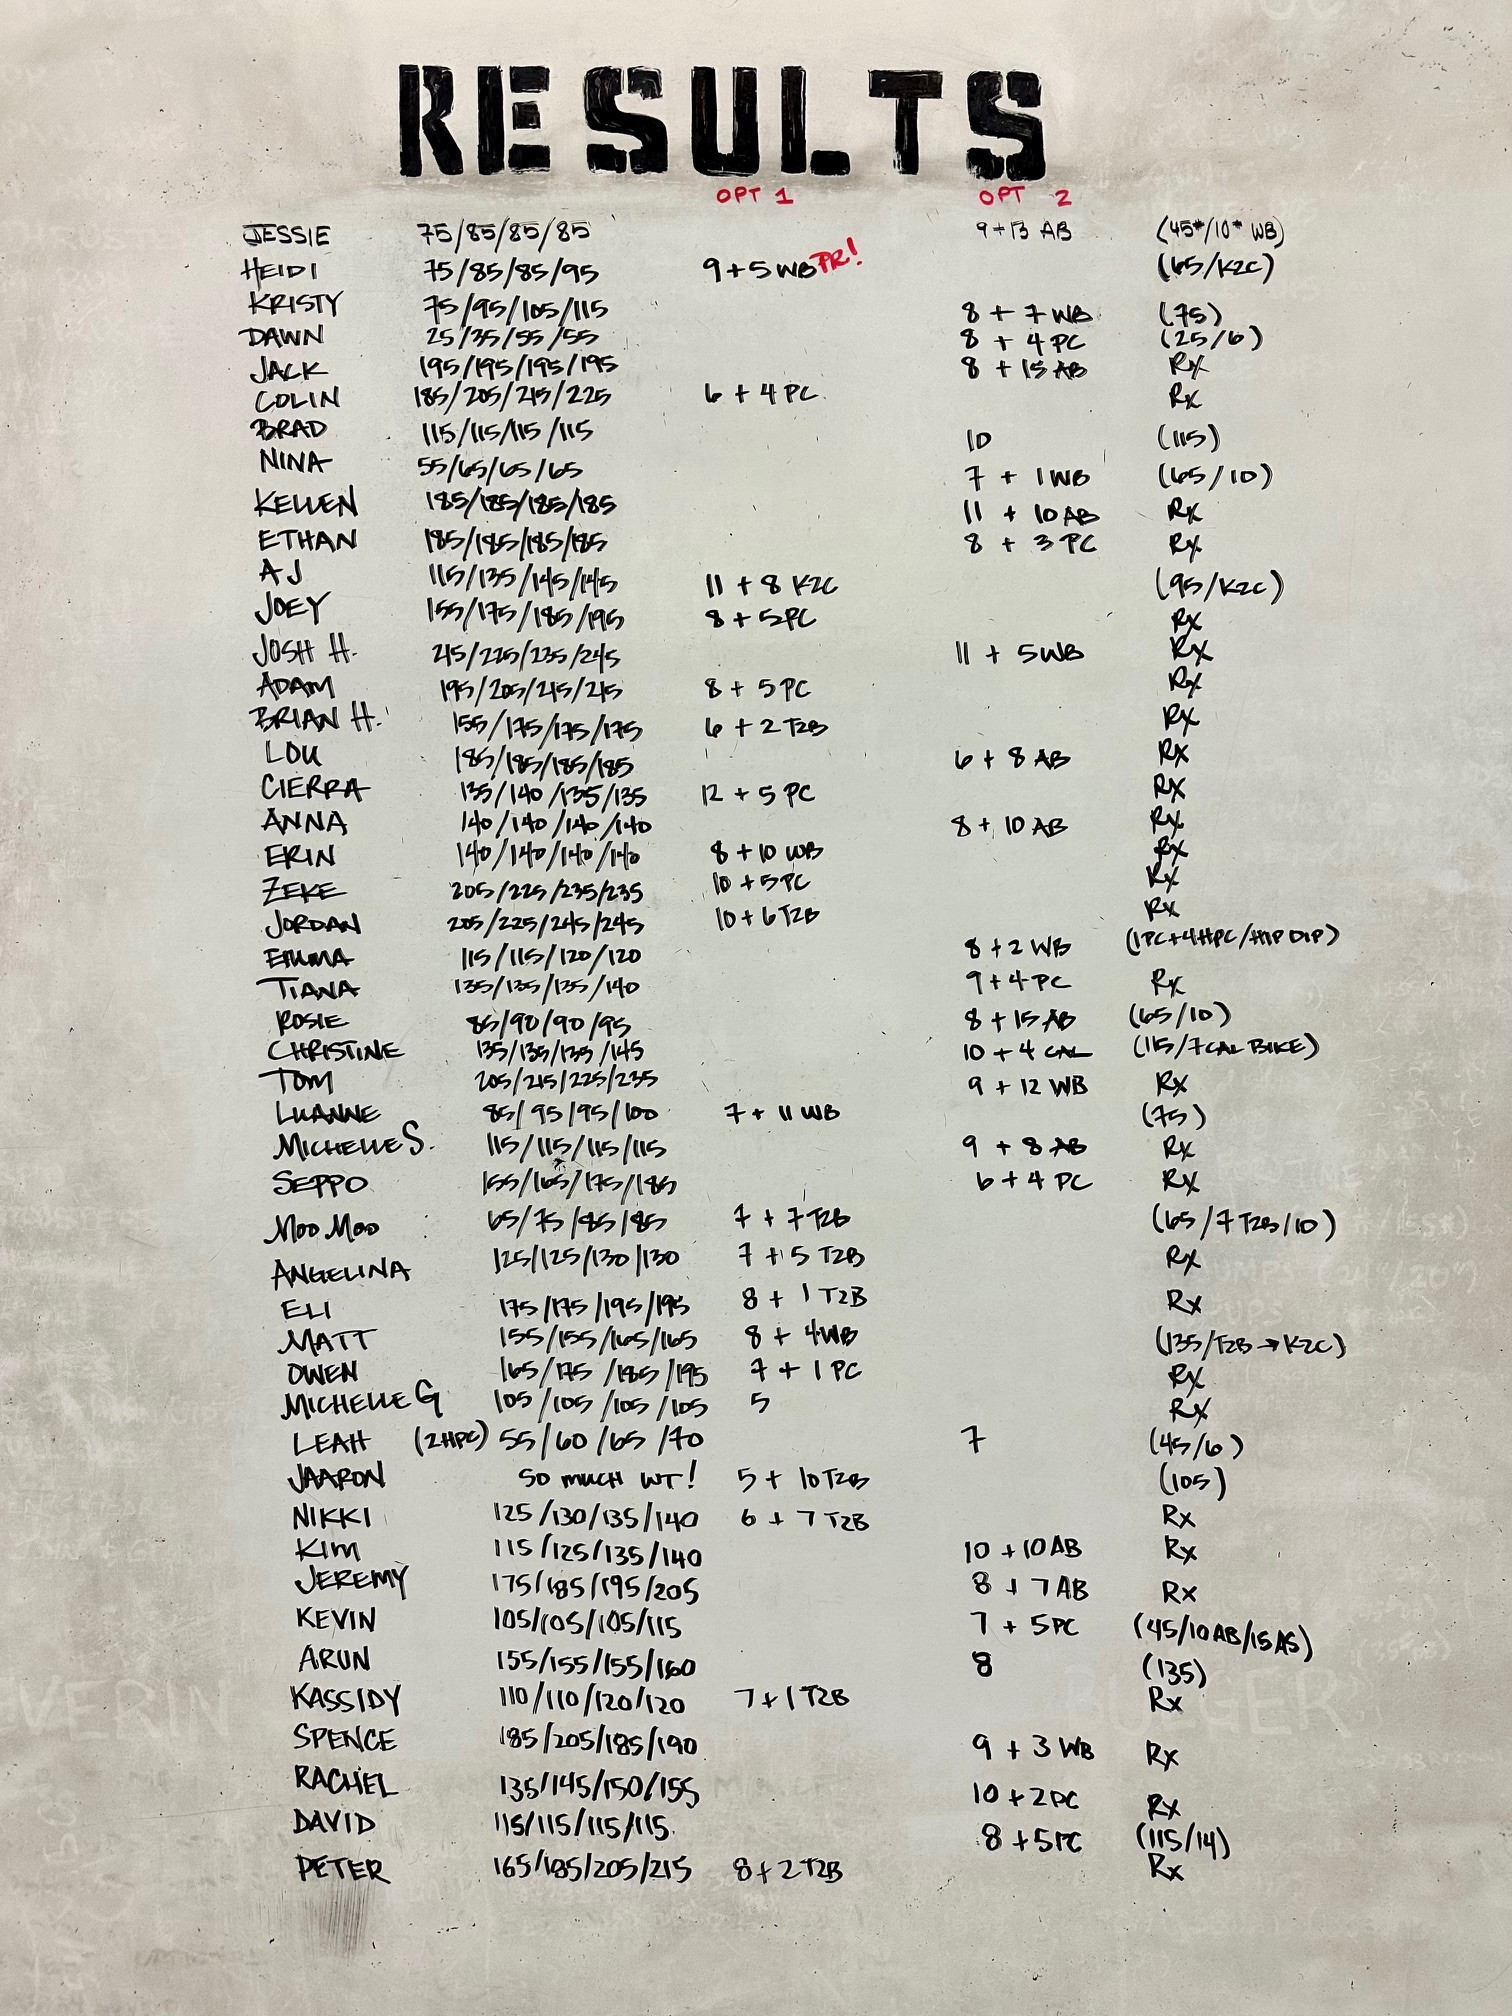 RESULTS
OPT 1 OPT 2
JESSIE 75/85/85/85 9+13 AB (45#/10# WB)
HEIDI 75/85/85/95 9+5 WB PR! (65/K2C)
KRISTY 75/95/105/115 8 + 7 WB (75)
DAWN 25/35/55/55 8 + 4 PC (25/6)
JACK 195/195/195/195 8 + 15 AB Rx
COLIN 185/205/215/225 6 + 4 PC Rx
BRAD 115/115/115/115 10 (115)
NINA 55/65/65/65 7 + 1 WB (65/10)
KELLEN 185/185/185/185 11 + 10 AB Rx
ETHAN 185/185/185/185 8 + 3 PC Rx
AJ 115/135/145/145 11 + 8 K2C (95/K2C)
JOEY 155/175/185/195 8 + 5PC Rx
JOSH H. 215/225/235/245 11 + 5WB Rx
ADAM 195/205/215/215 8 + 5 PC Rx
BRIAN H. 155/175/175/175 6 + 2 T2B Rx
LOU 185/185/185/185 6 + 8 AB Rx
CIERRA 135/140/135/135 12 + 5 PC Rx
ANNA 140/140/140/140 8 + 10 AB Rx
ERIN 140/140/140/140 8 + 10 WB Rx
ZEKE 205/225/235/235 10 + 5PC Rx
JORDAN 205/225/245/245 10 + 6 T2B Rx
EMMA 115/115/120/120 8 + 2 WB (1PC+4HPC/HIP DIP)
TIANA 135/135/135/140 9 + 4 PC Rx
ROSIE 85/90/90/95 8 + 15 AB (65/10)
CHRISTINE 135/135/135/145 10 + 4 CAL (115/7CAL BIKE)
TOM 205/215/225/235 9 + 12 WB Rx
LUANNE 85/95/95/100 7 + 11 WB (75)
MICHELLE S. 115/115/115/115 9 + 8 AB Rx
SEPPO 155/165/175/185 6 + 4 PC Rx
Moo Moo 65/75/85/85 7 + 7 T2B (65/7 T2B/10)
ANGELINA 125/125/130/130 7 + 5 T2B Rx
ELI 175/175/195/195 8 + 1 T2B Rx
MATT 155/155/165/165 8 + 4WB (135/T2B → K2C)
OWEN 165/175/185/195 7 + 1 PC Rx
MICHELLE G 105/105/105/105 5 Rx
LEAH (2HPC) 55/60/65/70 7 (45/6)
JAARON SO MUCH WT! 5 + 10 T2B (105)
NIKKI 125/130/135/140 6 + 7 T2B Rx
KIM 115/125/135/140 10 + 10 AB Rx
JEREMY 175/185/195/205 8 + 7 AB Rx
KEVIN 105/105/105/115 7 + 5PC (45/10 AB/15 AS)
ARUN 155/155/155/160 8 (135)
KASSIDY 110/110/120/120 7 + 1 T2B Rx
SPENCE 185/205/185/190 9 + 3 WB Rx
RACHEL 135/145/150/155 10 + 2PC Rx
DAVID 115/115/115/115. 8 + 5PC (115/14)
PETER 165/185/205/215 8 + 2 T2B Rx